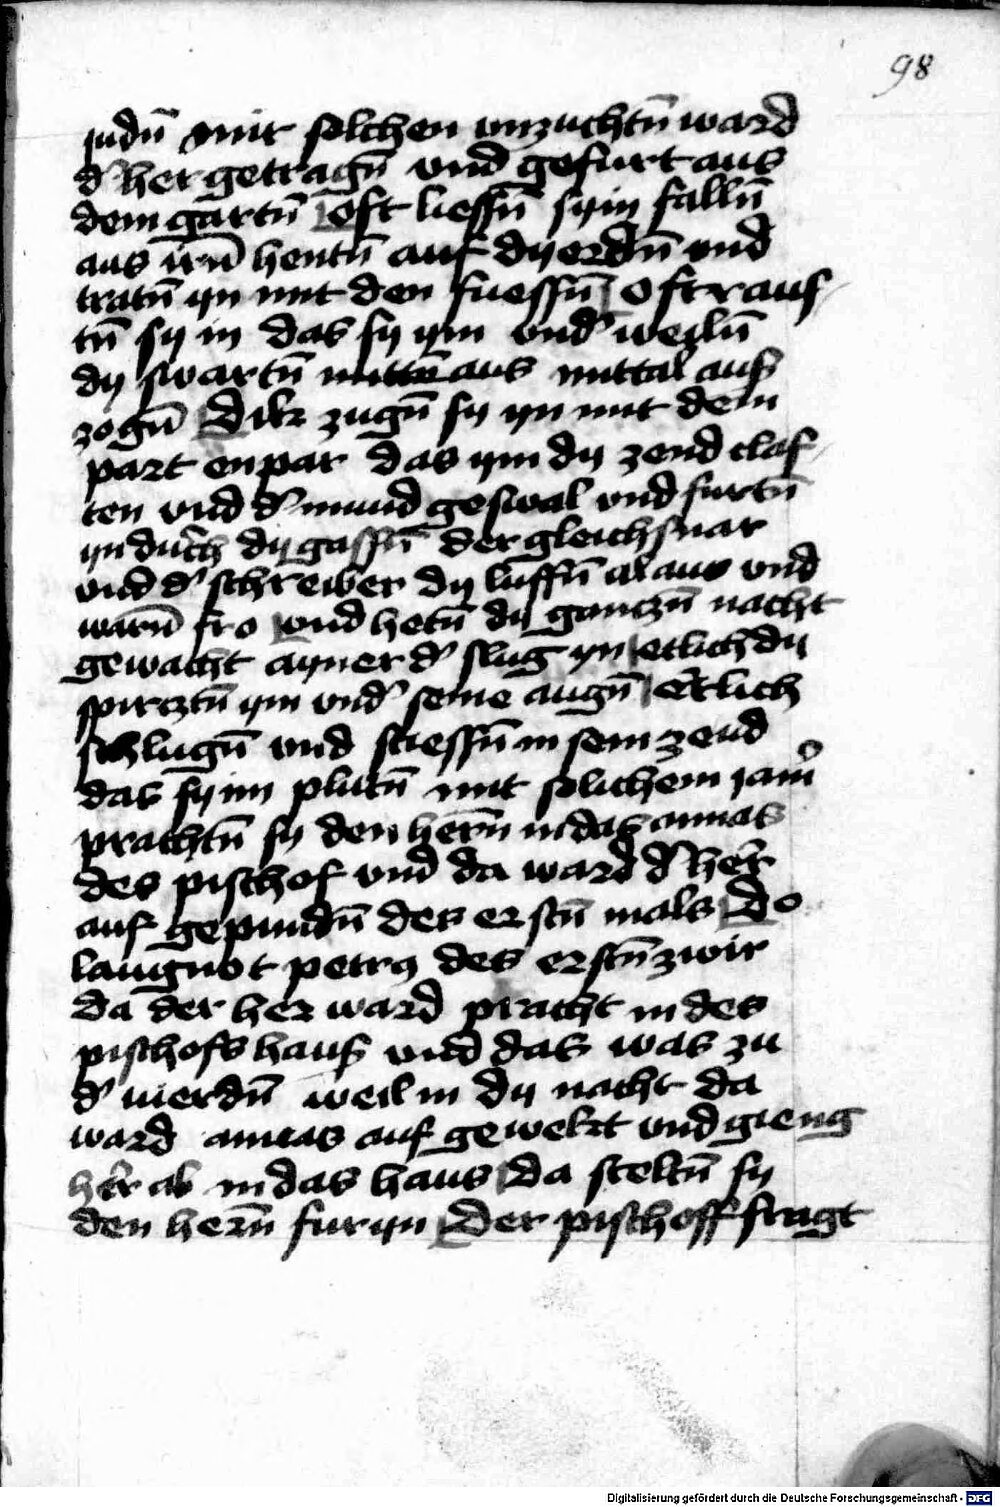 98
judn̄ mit solchen vnzuchtn̄ ward
d' her getragn̄ vnd gefurt aus
dem gartn̄ oft liessn̄ syin falln̄
aus irn̄ hentn̄ auf dy erdn̄ vnd
tratn̄ yn mit den fuessn̄ oft raus-
tn̄ sy in das sy ym vnd' weiln̄
dy swartn̄ aus mittal aus
zogn̄ Dik zugn̄ sy yn mit dem
part enpar das ym dy zend claf-
ten vnd d' mund geswal vnd furtn̄
yn durch dy gassn̄ der gleichsnar
vnd d' schreiber dy luffn̄ al aus vnd
warn̄ fro vnd hetn̄ dy gantzn̄ nacht
gewacht ayner d' slug yn etlich dy
spirtztn̄ ym vnd' seine augn̄ etlich
schlugn̄ vnd stiessn̄ in sein zend
das sy im plutn̄ mit solichem jam'
prachtn̄ sy den hern̄ in das annas
des pischof vnd da ward d' her
auf gepundn̄ des erstn̄ mals Do
laugnot petrus des erstn̄ zwir
da der her ward pracht in des
pischofs haus vnd das was zu
d' vierdn̄ weil in dy nacht da
ward annas auf gewekt vnd gieng
her ab in das haus Da steltn̄ sy
den hern̄ fur yn Der pischoff fragt
Digitalisierung gefördert durch die Deutsche Forschungsgemeinschaft - DFG